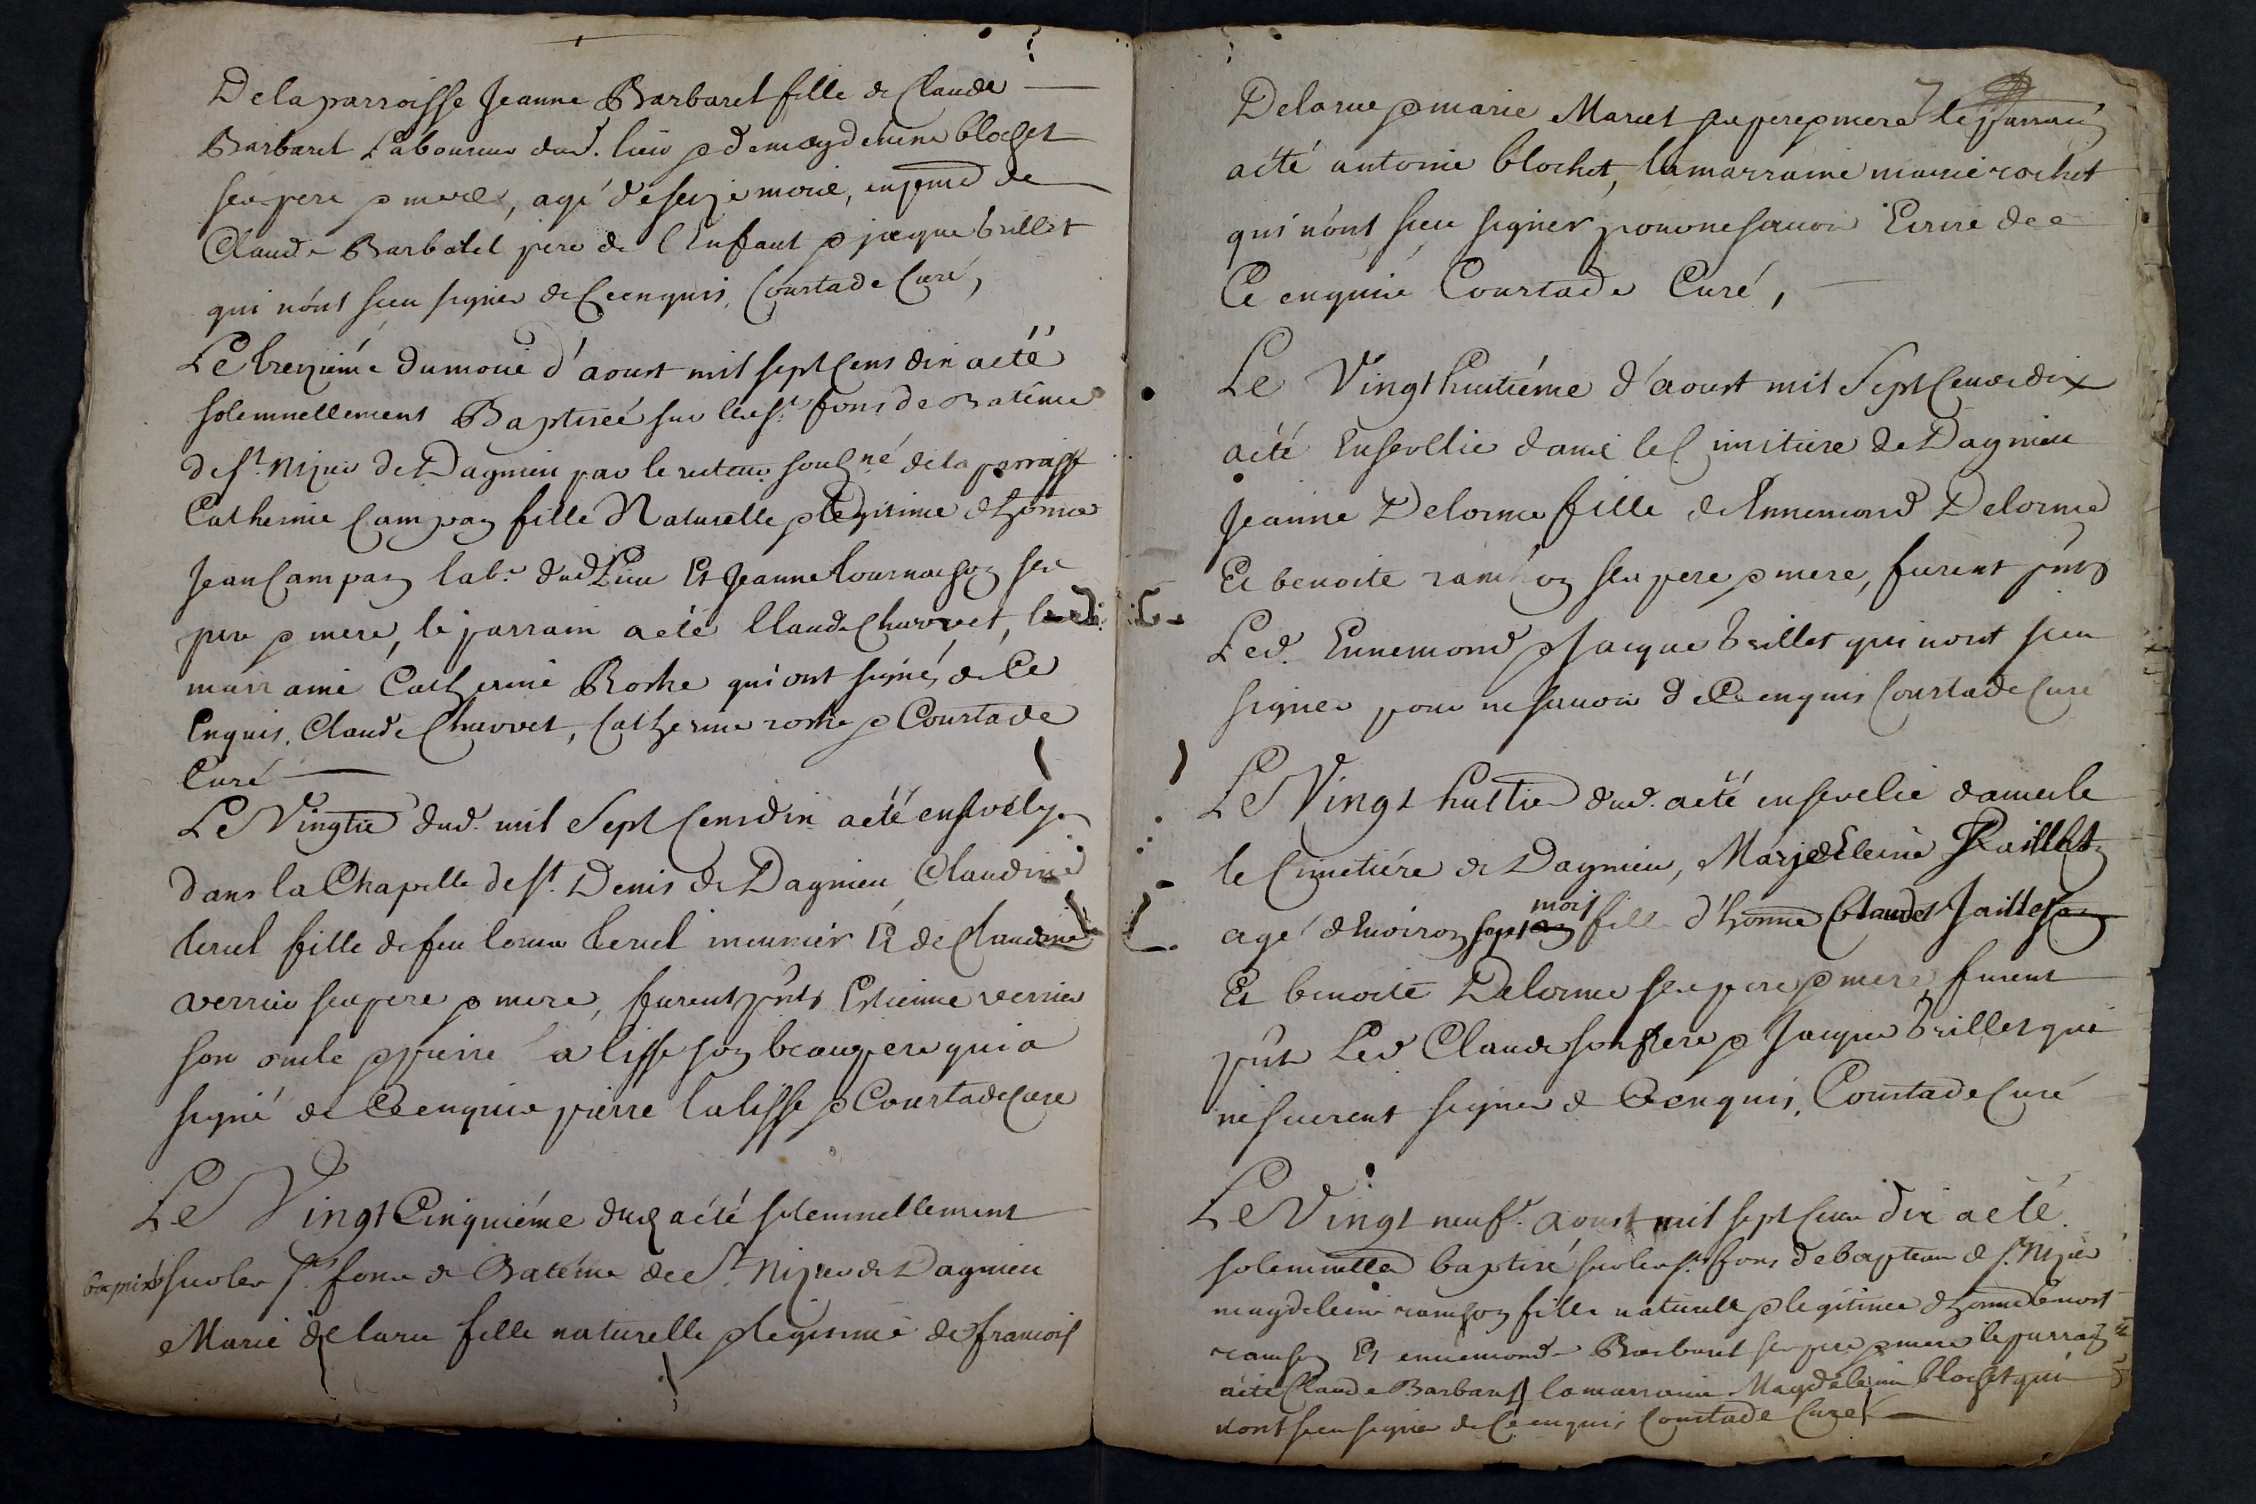 De la parroisse Jeanne Barbaret fille de Claude
Barbaret Laboureur dud. lieu & de magdeleine blochet
ses pere & mere, agé de seize mois, en pnce de
Claude Barbaret pere de l'Enfant & jacque brillet
qui n'ont sceu signer de Ce enquis, Courtade Curé,
Le treiziéme du mois d'aoust mil sept Cens dix a eté
solemnellement Baptiseé sur les sts fons de Batême
de st. Nizier de Dagnieu par le recteur sousné de la parroisse
Catherine Campan fille Naturelle & legitime d'honne
Jean Campan labr. dud Lieu Et Jeanne tournason ses
pere & mere, le parrain a eté Claude Chavvet, la
marraine Catherine Roche qui ont signé, de Ce
Enquis. Claude Chavvet, Catherine roche & Courtade
Curé
Le Vingtie dud. mil Sept Cens dix a eté ensevely
dans la Chapelle de st. Denis de Dagnieu Claudine
teruel fille de feu louis teruel meunier Et de Claudine
verrier ses pere & mere, furent pnts Estienne verrier
son oncle & pierre lalisse son beaupere qui a
signé de Ce enquis pierre lalisse & Courtade Curé
Le Vingt Cinquiéme dud a eté solemnellement
baptisé sur les sts fons de Batême de St Nizier de Dagnieu
Marie de larue fille naturelle & legitime de francois
7
Delarue & marie Maret ses pere & mere le parrain
a eté antoine blochet, la marraine marie rochet
qui n'ont sceu signer pour ne savoir Ecrire de
Ce enquis Courtade Curé,
Le Vingt huitiéme d'aoust mil Sept Cens dix
a eté Ensevelie dans le Cimitiere de Dagnieu
Jeanne Delorme fille de Ennemond Delorme
Et benoite ramson ses pere & mere, furent pnts
Led. Ennemond & Jacque brillet qui n'ont sceu
signer pour ne savoir de Ce enquis Courtade Curé
Le Vingt huitie dud. a eté ensevelie dans le
le Cimetiére de Dagnieu, Marjedeleine Jaillet
agé d'Environ sept mois fille d'honne Claude Jaillet
Et benoite Delorme ses pere & mere furent
pnts Led Claude son pere & Jacque brillet qui
ne sceurent signer de Ce enquis, Courtade Curé
Le Vingt neufe. aoust mil sept Cens dix a eté
solemnellet baptisé sur les sts fons de bapteme de st. Nizier
magdeleine ramson fille naturelle & legitime d'honne benoit
ramson Et ennemonde Barbaret ses pere & mere le parrain
a eté Claude Barbaret la marraine Magdeleine blochet qui
n'ont sceu signer de Ce enquis Courtade Curé